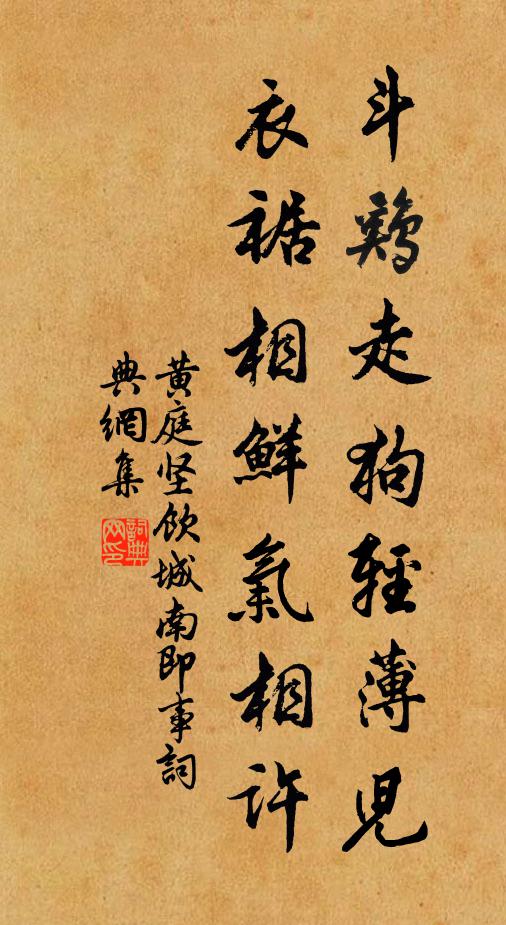 斗鷄走狗輕薄兒
衣裾相鮮氣相許
黄庭坚飲城南即事詞
典網集
詞典网印